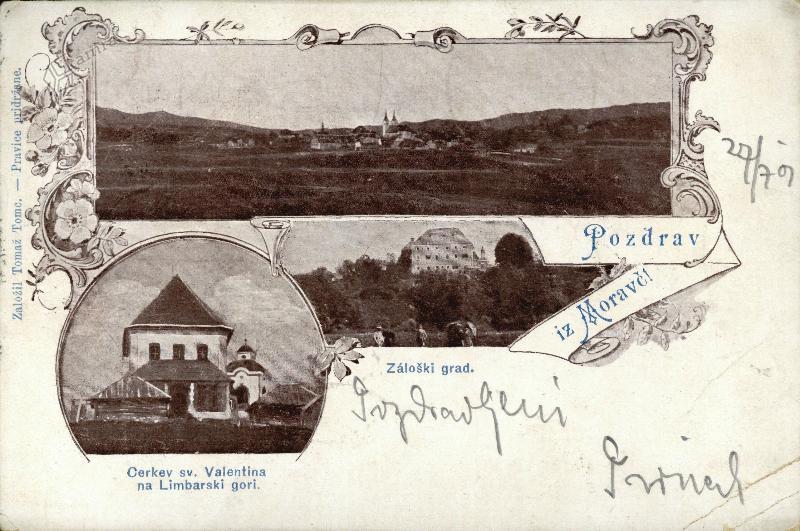 Založil Tomaž Tomc. — Pravice pridržane.
Pozdrav
iz Moravč!
Záloški grad.
Cerkev sv. Valentina
na Limbarski gori.
Pozdravljeni